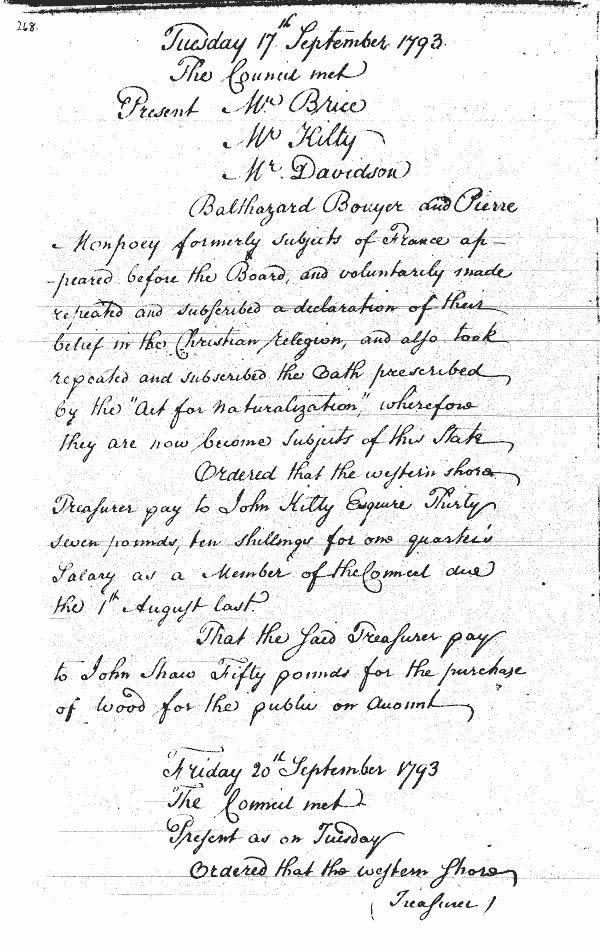 268.
Tuesday 17th September 1793.
The Council met
Present Mr Brice
Mr Kilty
Mr. Davidson
Balthazard Bouyer and Pierre
Monpoey formerly subjects of France ap-
-peared before the Board, and voluntarily made
repeated and subscribed a declaration of their
belief in the Christian relegion, and also took
repeated and subscribed the Oath prescribed
by the "Act for naturalization", wherefore
they are now become subjects of this State
Ordered that the western shore
Treasurer pay to John Kilty Esquire Thirty
seven pounds, ten shillings for one quarter's
Salary as a Member of the Council due
the 1st August last.
That the said Treasurer pay
to John Shaw Fifty pounds for the purchase
of wood for the public on Account
Friday 20th September 1793
The Council met
Present as on Tuesday
Ordered that the western shore
(Treasurer)